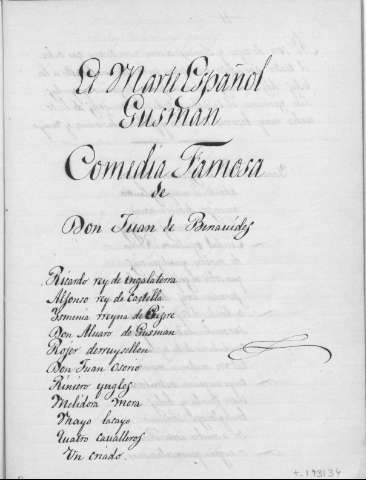 El Marte Español
Gusman
Comedia Famosa
de
Don Juan de Benauides
Ricardo rey de ingalaterra
Alfonso rey de Castella
Ismenia rreyna de Cipre
Don Aluaro de Gusman
Rojer de rruysellon
Don Juan Osorio
Riniero yngles
Melidora mora
Mayo lacayo
Quatro caualleros
Un criado.
+.193134